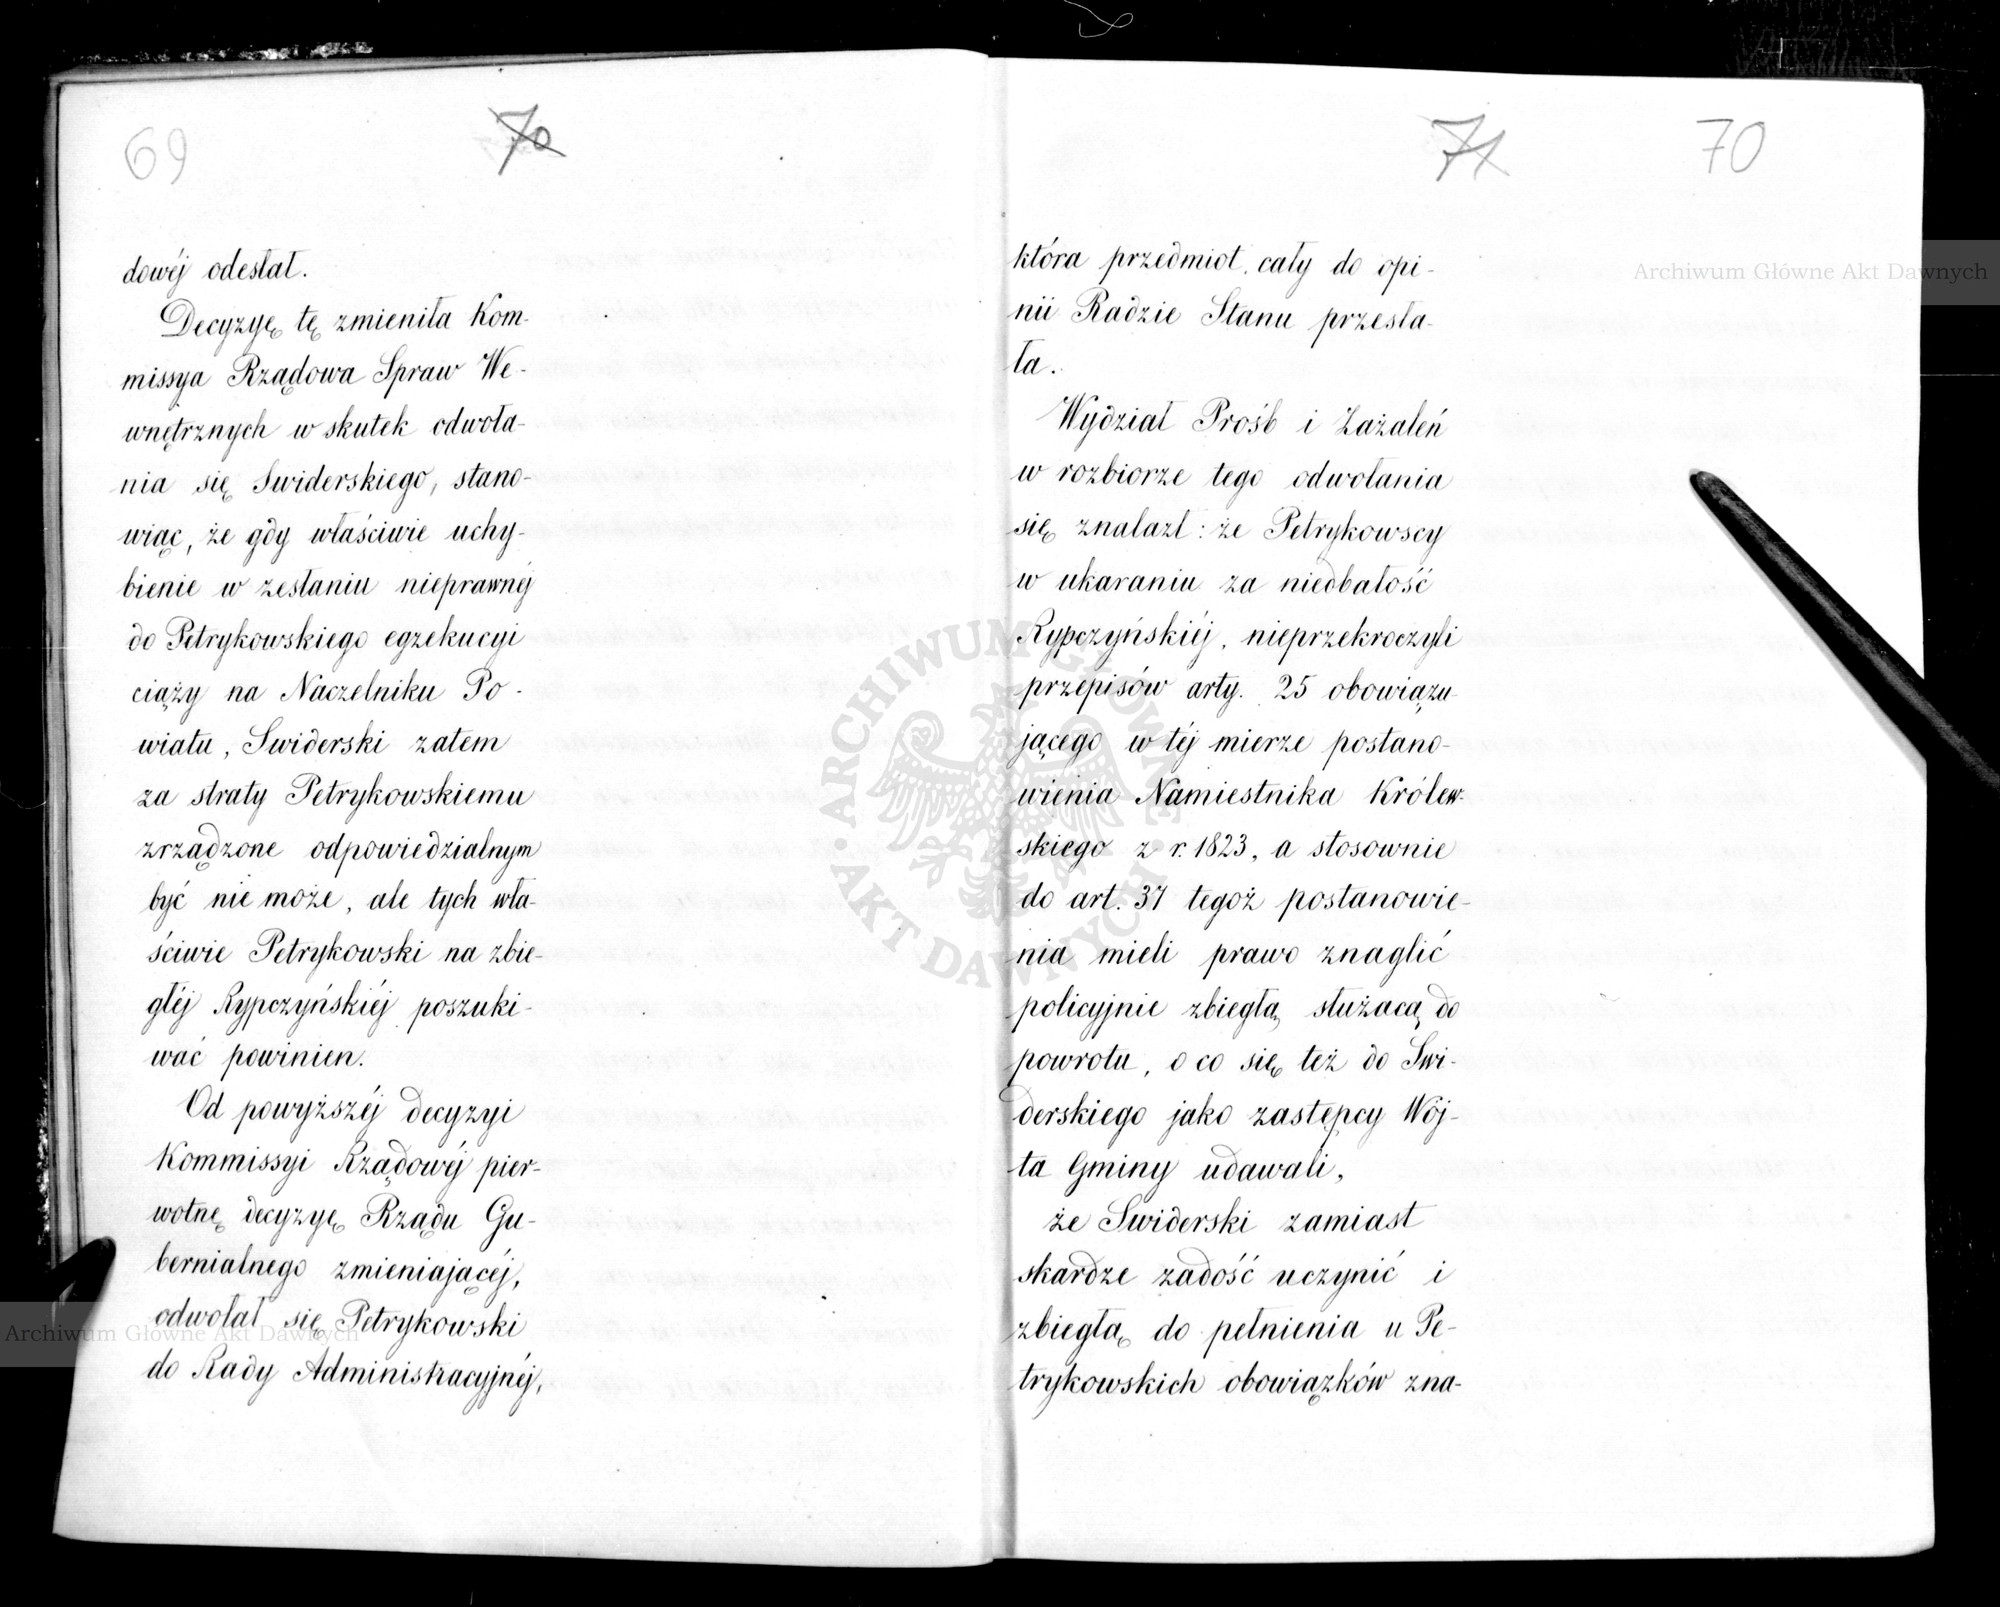 69
70
dowéj odesłał.
Decyzyę tę zmieniła Kom-
missya Rządowa Spraw We-
wnętrznych w skutek odwoła-
nia się Swiderskiego, stano-
wiąc, że gdy właściwie uchy-
bienie w zesłaniu nieprawnéj
do Petrykowskiego egzekucyi
ciąży na Naczelniku Po-
wiatu, Swiderski zatem
za straty Petrykowskiemu
zrządzone odpowiedzialnym
być nie może, ale tych wła-
ściwie Petrykowski na zbie-
głéj Rypczyńskiéj poszuki-
wać powinien.
Od powyższéj decyzyi
Kommissyi Rządowéj pier-
wotnę decyzyę Rządu Gu-
bernialnego zmieniającéj,
odwołał się Petrykowski
do Rady Administracyjnéj,
71
70
która przedmiot cały do opi-
nii Radzie Stanu przesła-
ła.
Wydział Prośb i Zażaleń
w rozbiorze tego odwołania
się znalazł: że Petrykowscy
w ukaraniu za niedbałość
Rypczyńskiéj, nieprzekroczyli
przepisów arty. 25 obowiązu-
jącego w téj mierze postano-
wienia Namiestnika Królew-
skiego z r. 1823, a stosownie
do art. 37 tegoż postanowie-
nia mieli prawo znaglić
policyjnie zbiegłą służącą do
powrotu, o co się też do Swi-
derskiego jako zastępcy Wój-
ta Gminy udawali,
że Swiderski zamiast
skardze zadość uczynić i
zbiegłą do pełnienia u Pe-
trykowskich obowiązków zna-
Archiwum Główne Akt Dawnych
Archiwum Główne Akt Dawnych
ARCHIWUM GŁÓWNE AKT DAWNYCH